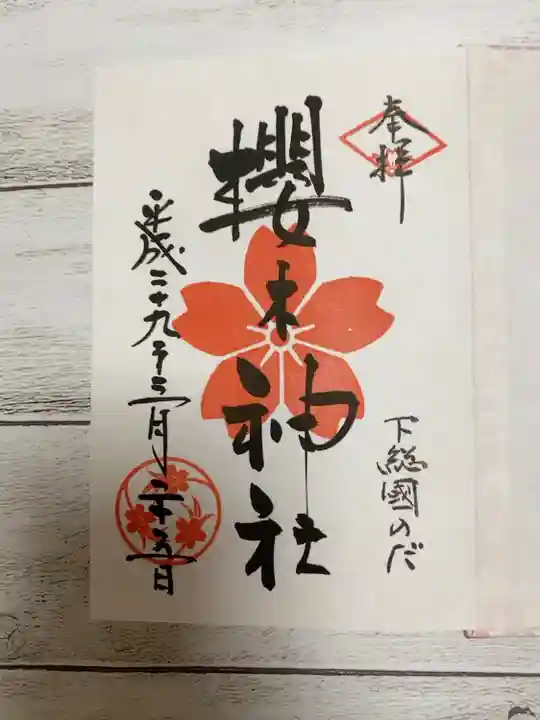 奉拝
下総國のだ
櫻木神社
平成二十九年十二月二十五日